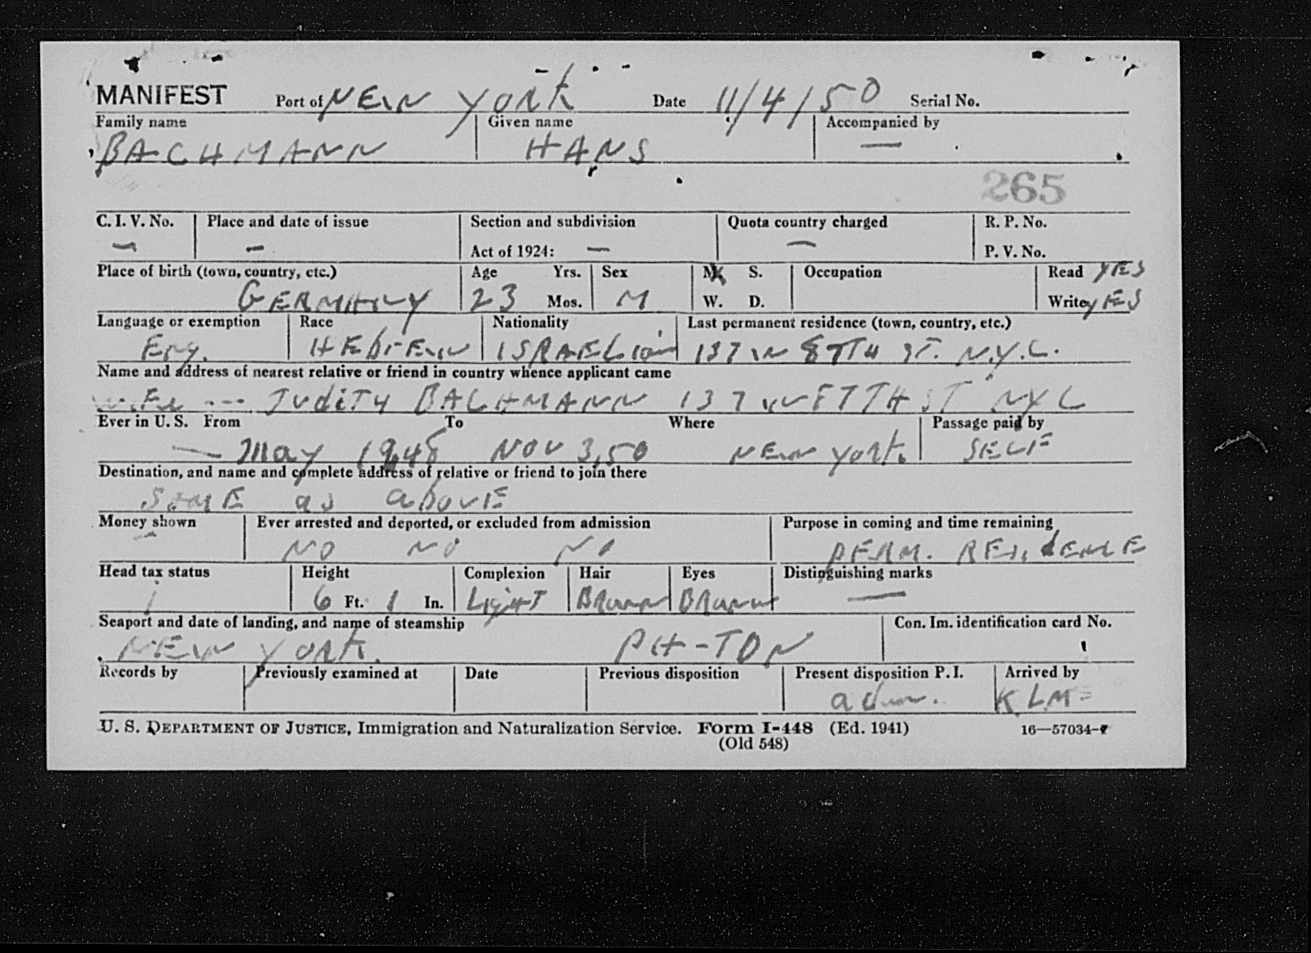 MANIFEST Port of NEW YORK Date 11/4/50 Serial No.
Family name Given name Accompanied by
BACHMANN HANS —
265
C. I. V. No. Place and date of issue Section and subdivision Quota country charged R. P. No.
— — Act of 1924: — — P. V. No.
Place of birth (town, country, etc.) Age Yrs. Sex M. S. Occupation Read YES
GERMANY 23 Mos. M W. D. Write YES
Language or exemption Race Nationality Last permanent residence (town, country, etc.)
Eng. HEBrEW ISRAELian 137 W 87TH ST. N.Y.C.
Name and address of nearest relative or friend in country whence applicant came
wiFE --- JudiTH BACHMANN 137 W 87TH ST NYC
Ever in U. S. From To Where Passage paid by
— May 1948 NOV 3,50 NEW YORK. SELF
Destination, and name and complete address of relative or friend to join there
SamE as abovE
Money shown Ever arrested and deported, or excluded from admission Purpose in coming and time remaining
— NO NO NO PERM. RESidENCE
Head tax status Height Complexion Hair Eyes Distinguishing marks
6 Ft. 1 In. LighT Brown Brown —
Seaport and date of landing, and name of steamship Con. Im. identification card No.
NEW YORK. PH-TDN
Records by Previously examined at Date Previous disposition Present disposition P. I. Arrived by
adm. KLM
U. S. DEPARTMENT OF JUSTICE, Immigration and Naturalization Service. Form I-448 (Ed. 1941) 16—57034-
(Old 548)